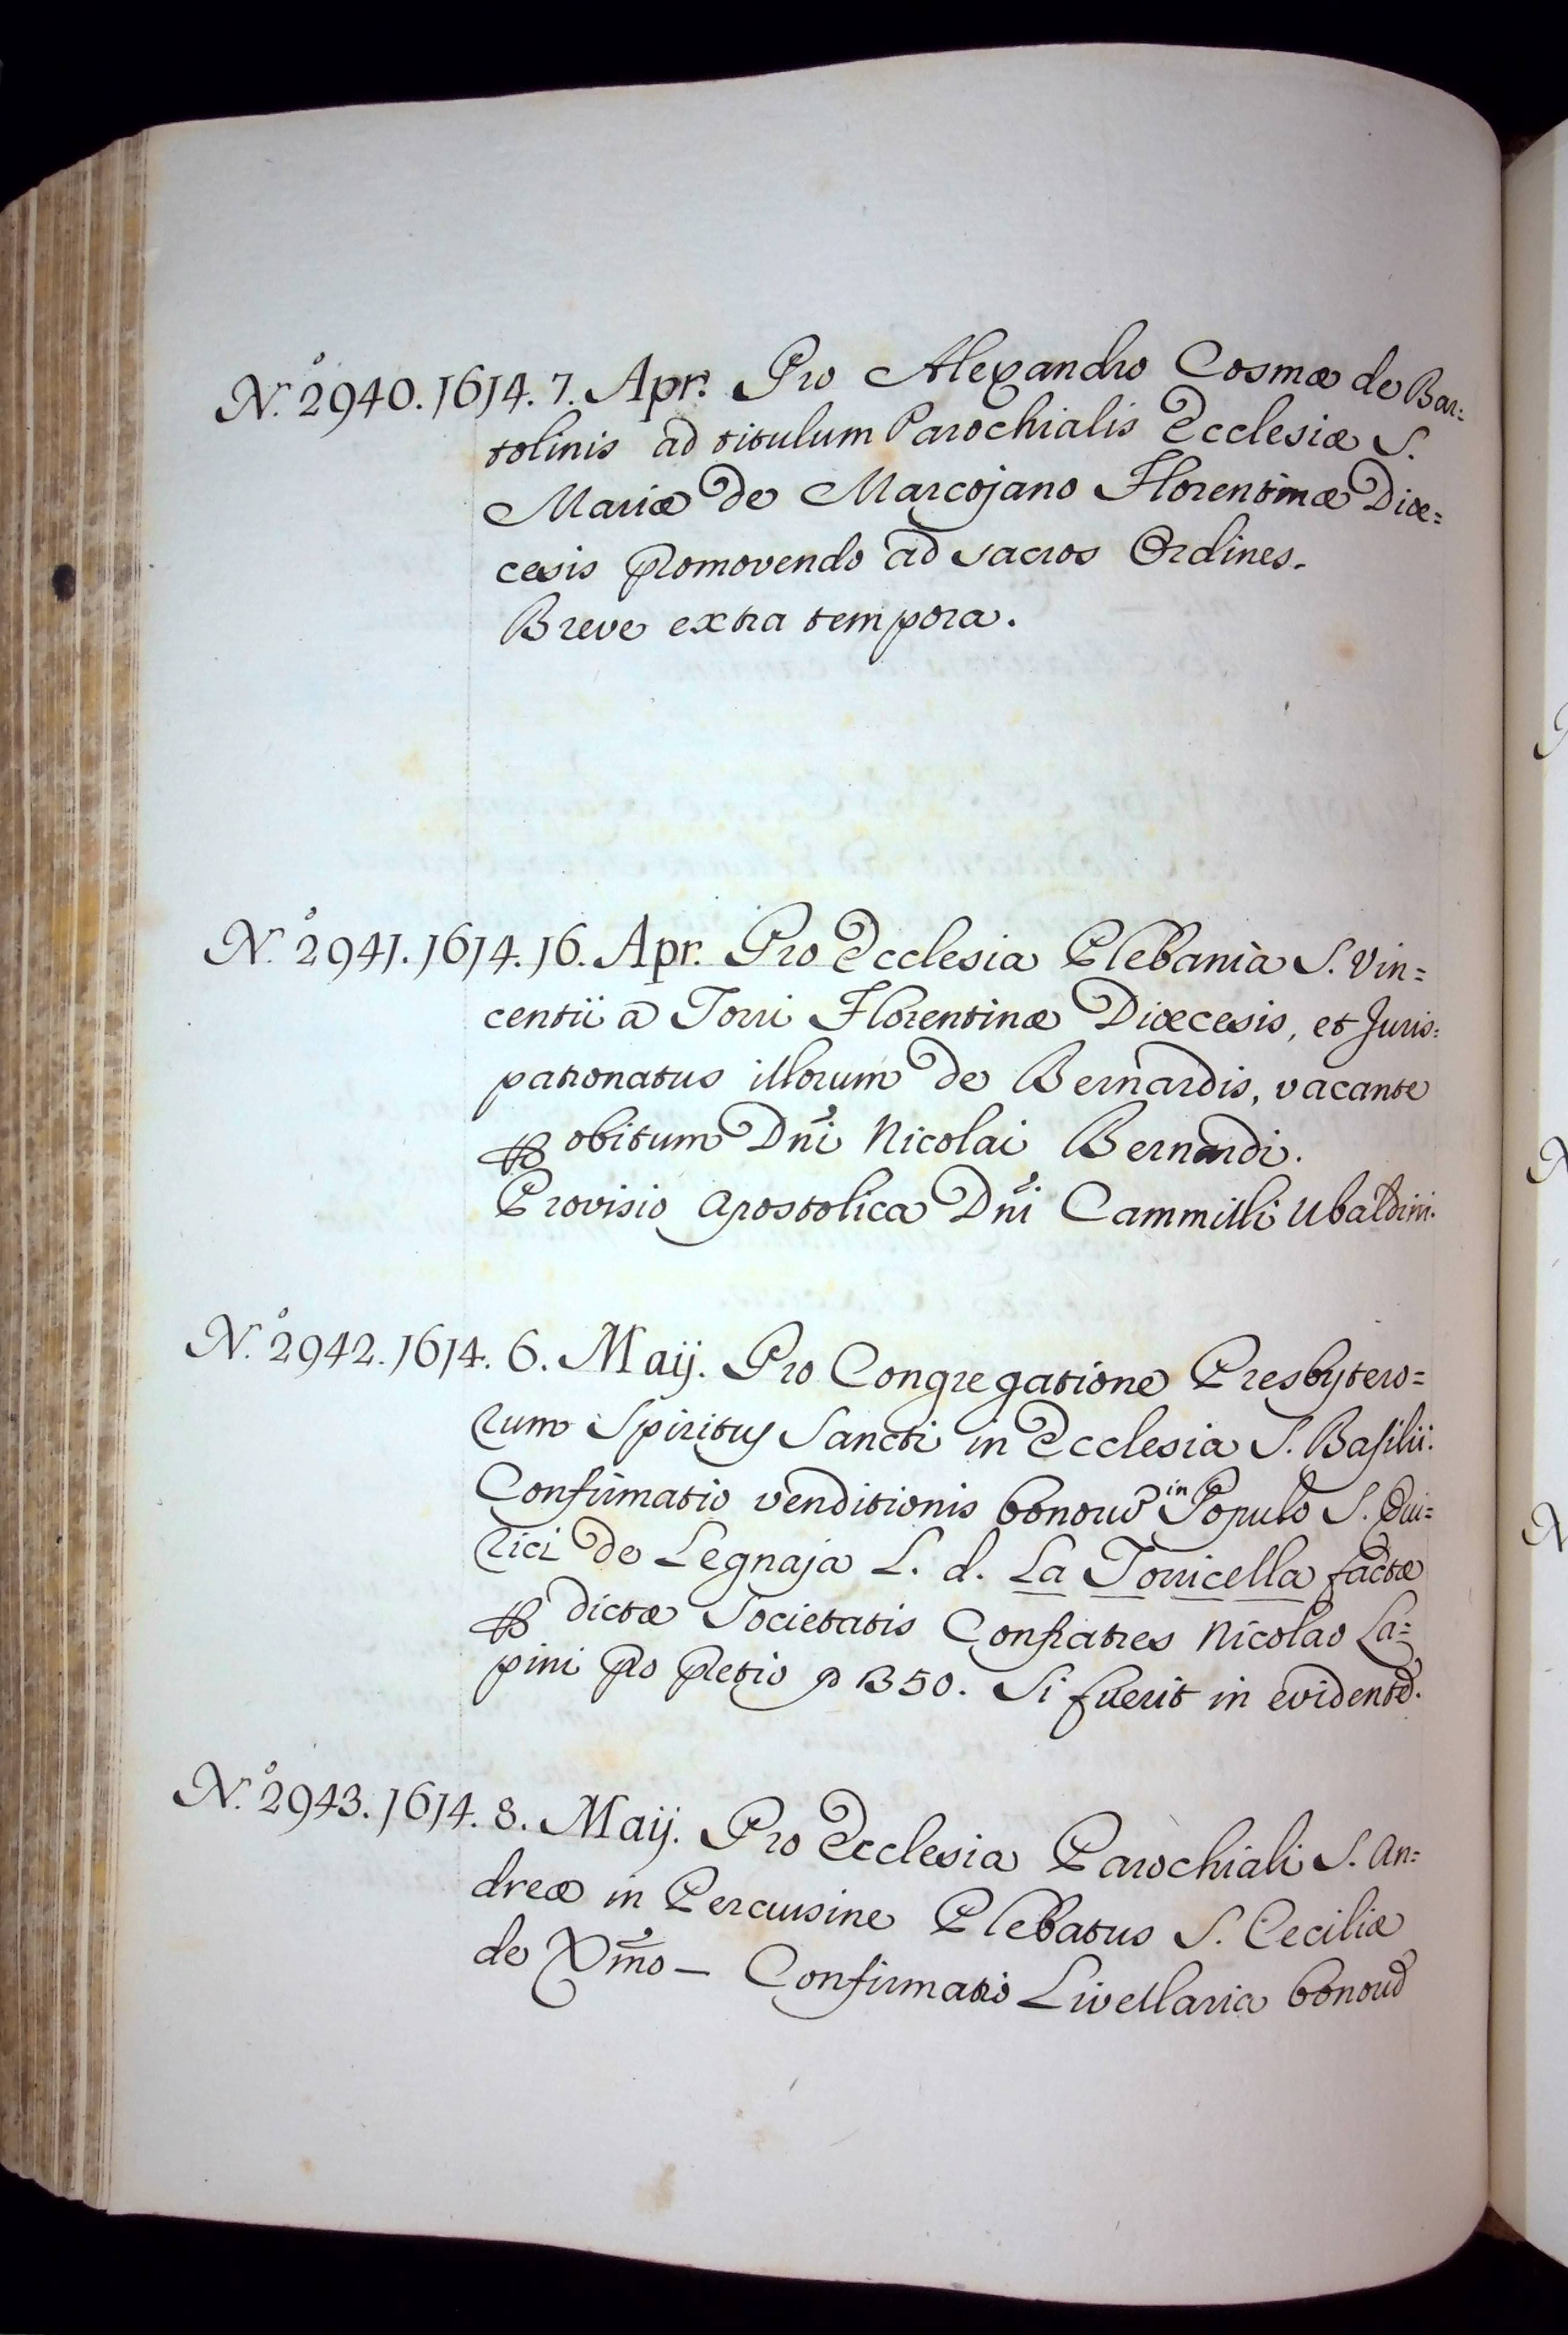 N.º 2940. 1614. 7. Apr. Pro Alexandro Cosmæ de Bar=
tolinis ad titulum Parochialis Ecclesiæ S.
Mariæ de Marcojano Florentinæ Diœ=
cesis promovendo ad sacros Ordines.
Breve extra tempora.
N.º 2941. 1614. 16. Apr. Pro Ecclesia Plebania S. Vin=
centii a Torri Florentinæ Diœcesis, et Juris=
patronatus illorum de Bernardis, vacante
ꝑ obitum Dñi Nicolai Bernardi.
Provisio Apostolica Dñi Cammilli Ubaldini.
N.º 2942. 1614. 6. Maij. Pro Congregatione Presbytero=
rum Spiritus Sancti in Ecclesia S. Basilii.
Confirmatio venditionis bonorũ in Populo S. Qui=
rici de Legnaja L. d. La Torricella factæ
ꝑ dictæ Societatis Confratres Nicolao La=
pini pro pretio 1350. Si fuerit in evidentẽ.
N.º 2943. 1614. 8. Maij. Pro Ecclesia Parochiali S. An=
dreæ in Percussine Plebatus S. Ceciliæ
de Xm̃o — Confirmatio Livellaria bonorũ